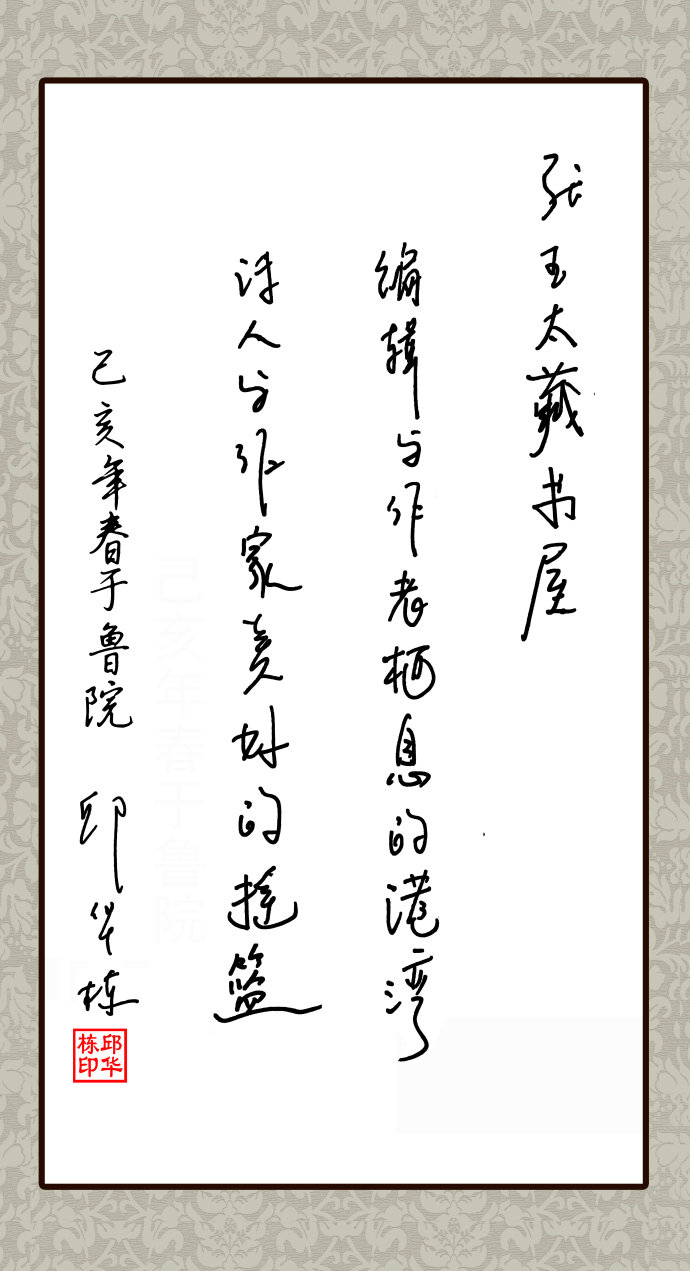 张玉太藏书屋
编辑与作者栖息的港湾
诗人与作家美好的摇篮
己亥年春于鲁院 邱华栋
邱华栋印
己亥年春于鲁院